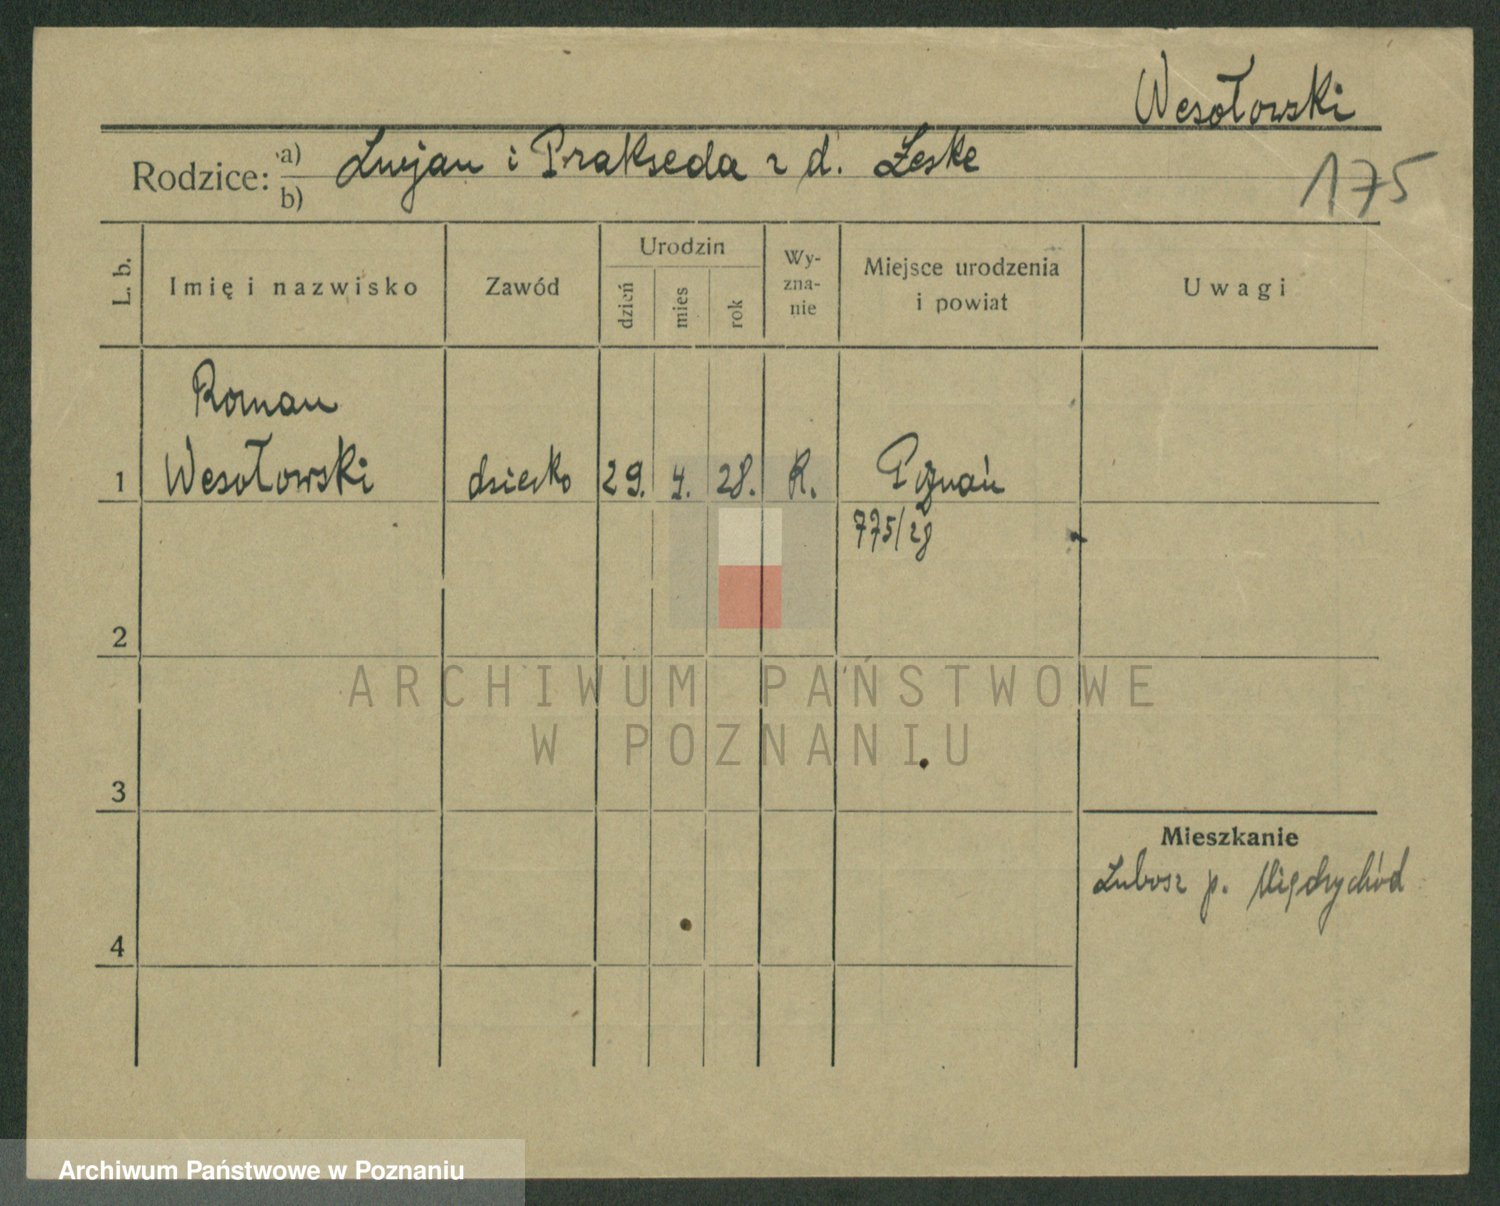 Wesołowski
Rodzice: a) Lucjan i Prakseda z d. Leske
b)
175
L. b.
Imię i nazwisko
Zawód
Urodzin
dzień
mies
rok
Wy-
zna-
nie
Miejsce urodzenia
i powiat
Uwagi
Roman
1 Wesołowski dziecko 29. 4. 28. R. Poznań
775/28
2
ARCHIWUM PAŃSTWOWE
W POZNANIU
3
Mieszkanie
Lubosz p. Międzychód
4
Archiwum Państwowe w Poznaniu